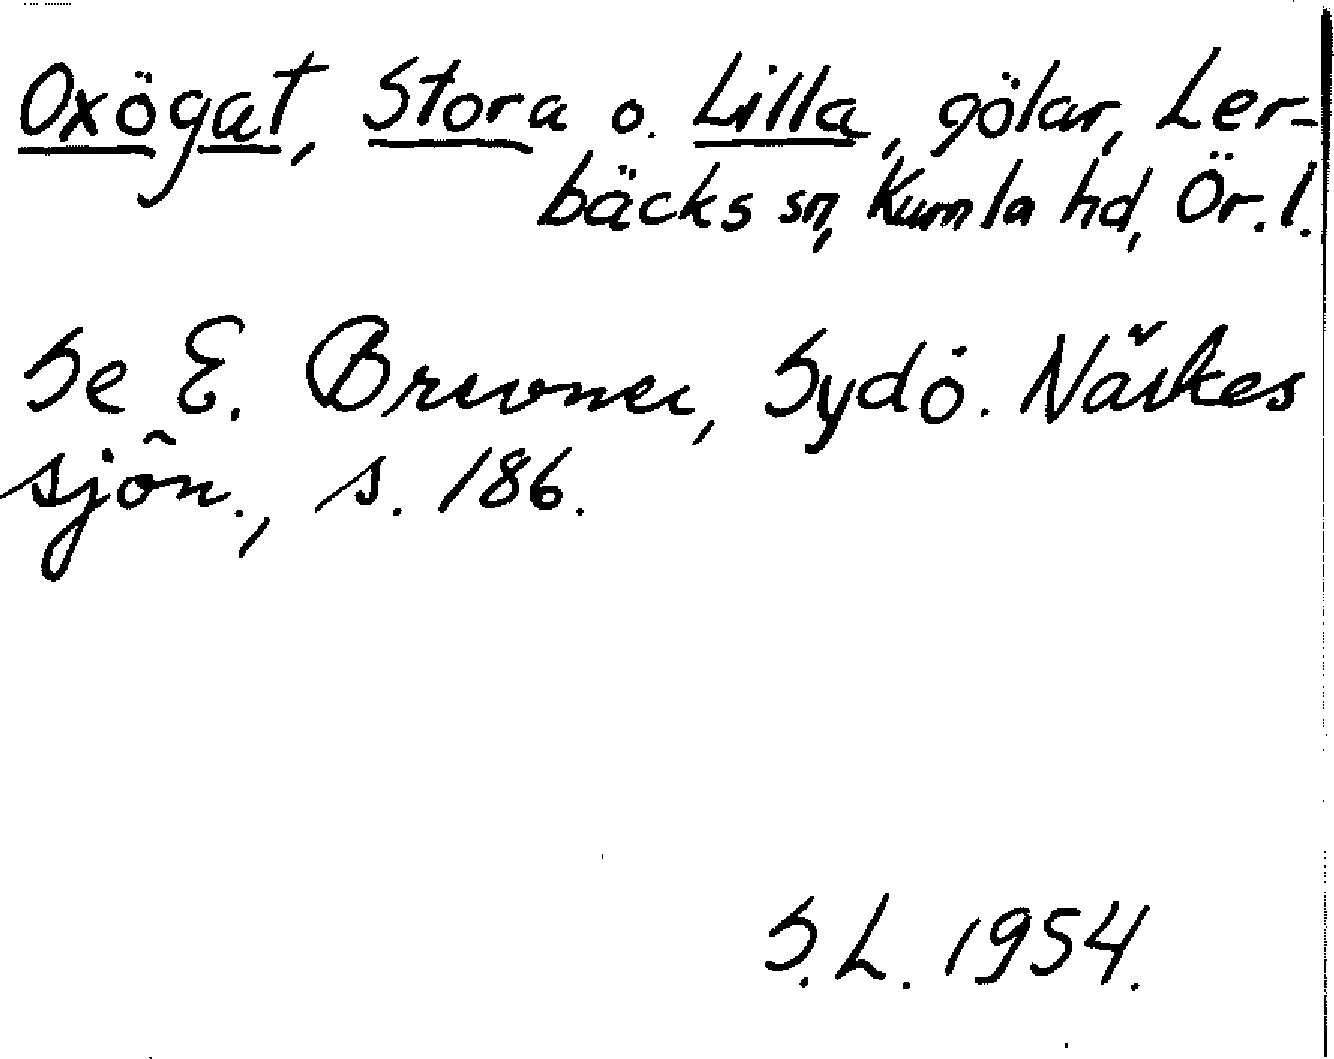 Oxögat, Stora o. Lilla, gölar, Ler-
bäcks sn, Kumla hd, Ör. l.
Se E. Brevner, Sydö. Närkes
sjön., s. 186.
S. L. 1954.